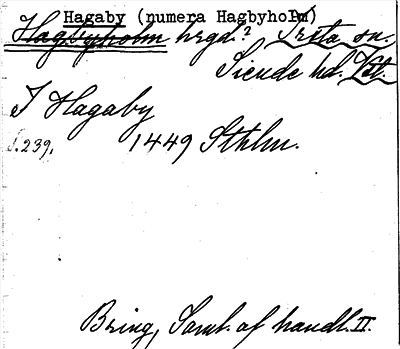 Hagaby (numera Hagbyholm)
Hagbyholm hrgd? Irsta sn.
Siende hd. Vst.
I Hagaby
s. 239.
1449 Sthlm.
Bring, Saml. af handl. II.